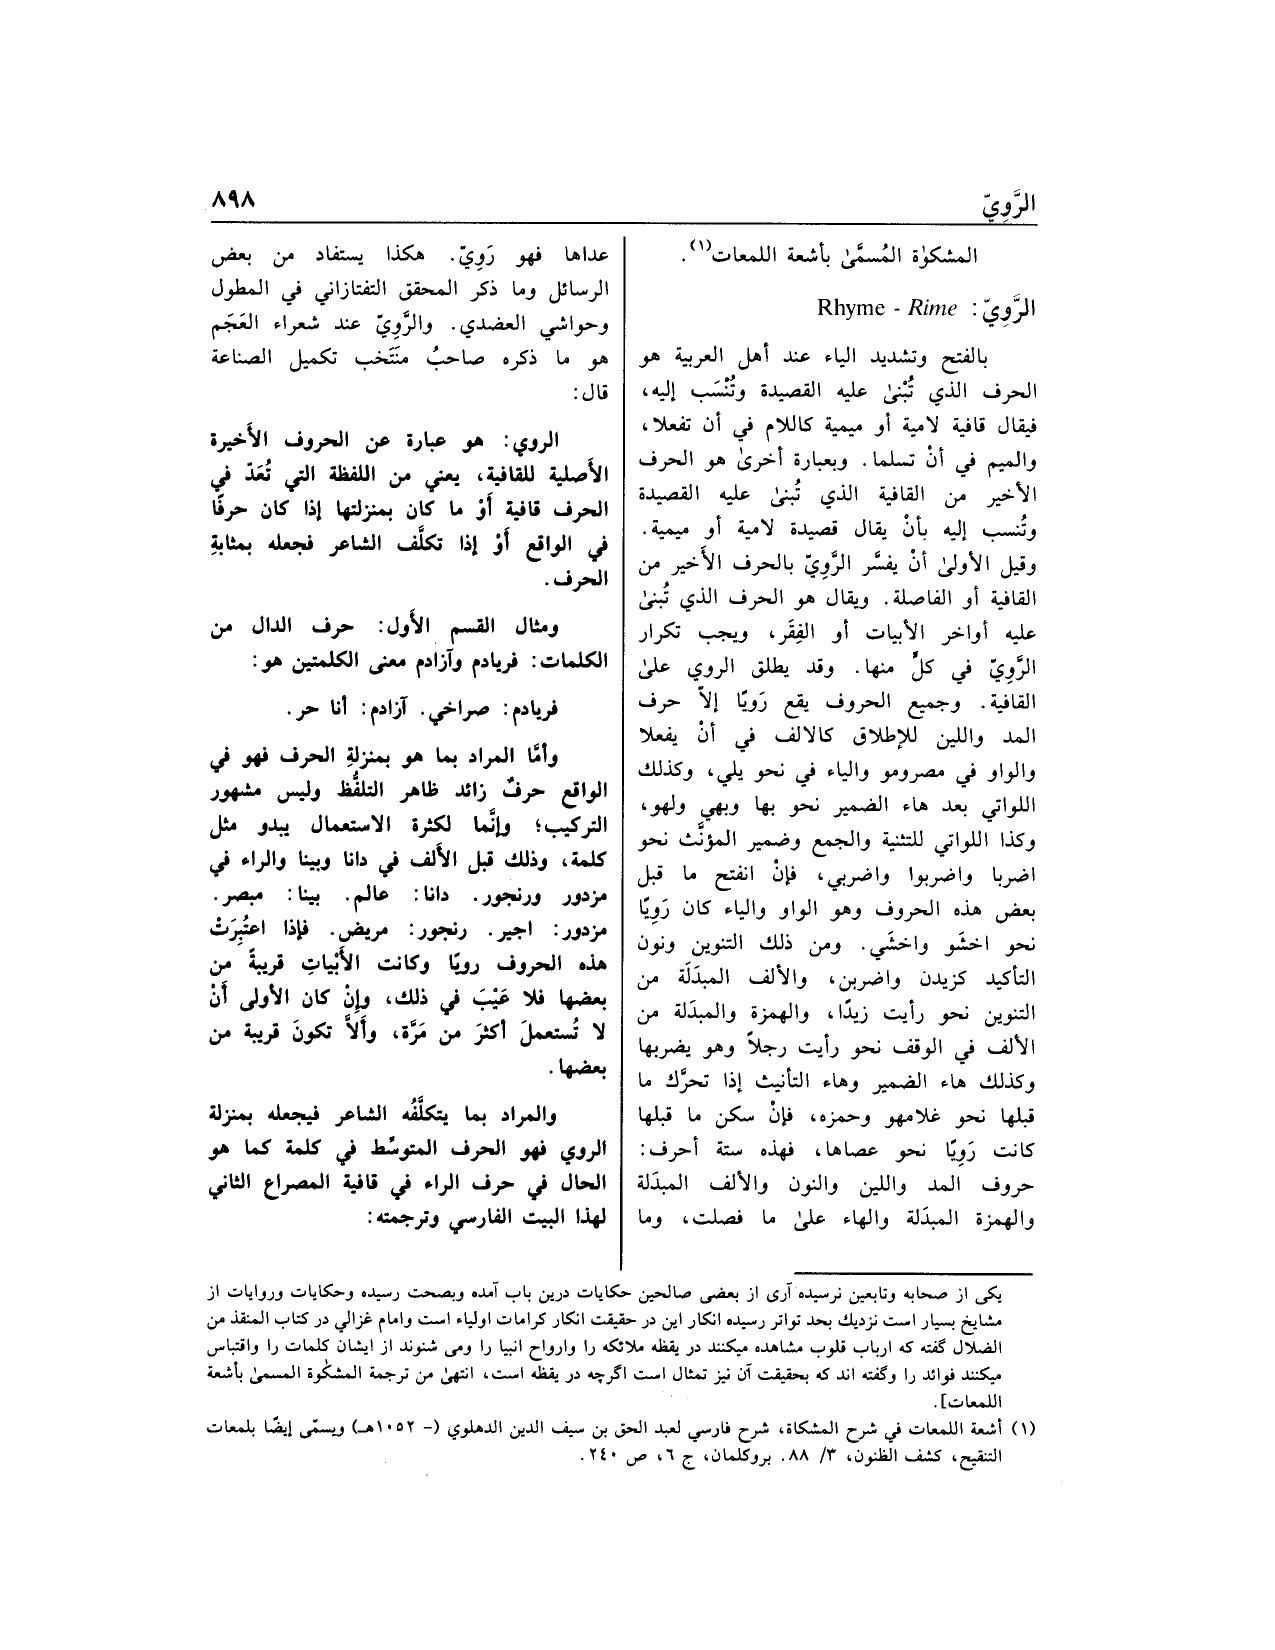 الرَّوِيّ
٨٩٨
المشكوٰة المُسمَّىٰ بأشعة اللمعات(١).
الرَّوِيّ: Rhyme - Rime
بالفتح وتشديد الياء عند أهل العربية هو
الحرف الذي تُبْنىٰ عليه القصيدة وتُنْسَب إليه،
فيقال قافية لامية أو ميمية كاللام في أن تفعلا،
والميم في أنْ تسلما. وبعبارة أخرىٰ هو الحرف
الأخير من القافية الذي تُبنىٰ عليه القصيدة
وتُنسب إليه بأنْ يقال قصيدة لامية أو ميمية.
وقيل الأولىٰ أنْ يفسَّر الرَّوِيّ بالحرف الأَخير من
القافية أو الفاصلة. ويقال هو الحرف الذي تُبنىٰ
عليه أواخر الأبيات أو الفِقَر، ويجب تكرار
الرَّوِيّ في كلٍّ منها. وقد يطلق الروي علىٰ
القافية. وجميع الحروف يقع رَويًا إلاّ حرف
المد واللين للإطلاق كالالف في أنْ يفعلا
والواو في مصرومو والياء في نحو يلي، وكذلك
اللواتي بعد هاء الضمير نحو بها وبهي ولهو،
وكذا اللواتي للتثنية والجمع وضمير المؤنَّث نحو
اضربا واضربوا واضربي، فإنْ انفتح ما قبل
بعض هذه الحروف وهو الواو والياء كان رَوِيًا
نحو اخشَو واخشَي. ومن ذلك التنوين ونون
التأكيد كزيدن واضربن، والألف المبدَلَة من
التنوين نحو رأيت زيدًا، والهمزة والمبدَلة من
الألف في الوقف نحو رأيت رجلاً وهو يضربها
وكذلك هاء الضمير وهاء التأنيث إذا تحرَّك ما
قبلها نحو غلامهو وحمزه، فإنْ سكن ما قبلها
كانت رَوِيًا نحو عصاها، فهذه ستة أحرف:
حروف المد واللين والنون والألف المبدَلة
والهمزة المبدَلة والهاء علىٰ ما فصلت، وما
عداها فهو رَوِيّ. هكذا يستفاد من بعض
الرسائل وما ذكر المحقق التفتازاني في المطول
وحواشي العضدي. والرَّوِيّ عند شعراء العَجَم
هو ما ذكره صاحبُ منَتَخب تكميل الصناعة
قال:
الروي: هو عبارة عن الحروف الأَخيرة
الأصلية للقافية، يعني من اللفظة التي تُعَدّ في
الحرف قافية أَوْ ما كان بمنزلتها إذا كان حرفًا
في الواقع أَوْ إذا تكلَّف الشاعر فجعله بمثابةِ
الحرف.
ومثال القسم الأَول: حرف الدال من
الكلمات: فريادم وآزادم معنى الكلمتين هو:
فريادم: صراخي. آزادم: أنا حر.
وأمَّا المراد بما هو بمنزلةِ الحرف فهو في
الواقع حرفٌ زائد ظاهر التلفُّظ وليس مشهور
التركيب؛ وإنَّما لكثرة الاستعمال يبدو مثل
كلمة، وذلك قبل الأَلف في دانا وبينا والراء في
مزدور ورنجور. دانا: عالم. بينا: مبصر.
مزدور: اجير. رنجور: مريض. فإذا اعتُبِرَتْ
هذه الحروف رويًا وكانت الأَبْياتِ قريبةً من
بعضها فلا عَيْبَ في ذلك، وإنْ كان الأولى أَنْ
لا تُستعملَ أكثرَ من مَرَّة، وأَلاَّ تكونَ قريبة من
بعضها.
والمراد بما يتكلَّفُه الشاعر فيجعله بمنزلة
الروي فهو الحرف المتوسِّط في كلمة كما هو
الحال في حرف الراء في قافية المصراع الثاني
لهذا البيت الفارسي وترجمته:
يكى از صحابه وتابعين نرسيده آرى از بعضى صالحين حكايات درين باب آمده وبصحت رسيده وحكايات وروايات از
مشايخ بسيار است نزديك بحد تواتر رسيده انكار اين در حقيقت انكار كرامات اولياء است وامام غزالي در كتاب المنقذ من
الضلال گفته كه ارباب قلوب مشاهده ميكنند در يقظه ملائكه را وارواح انبيا را ومى شنوند از ايشان كلمات را واقتباس
ميكنند فوائد را وگفته اند كه بحقيقت آن نيز تمثال است اگرچه در يقظه است، انتهىٰ من ترجمة المشكٰوة المسمىٰ بأشعة
اللمعات].
(١) أشعة اللمعات في شرح المشكاة، شرح فارسي لعبد الحق بن سيف الدين الدهلوي (- ١٠٥٢هـ) ويسمّى إيضًا بلمعات
التنقيح، كشف الظنون، ٣/ ٨٨. بروكلمان، ج ٦، ص ٢٤٠.